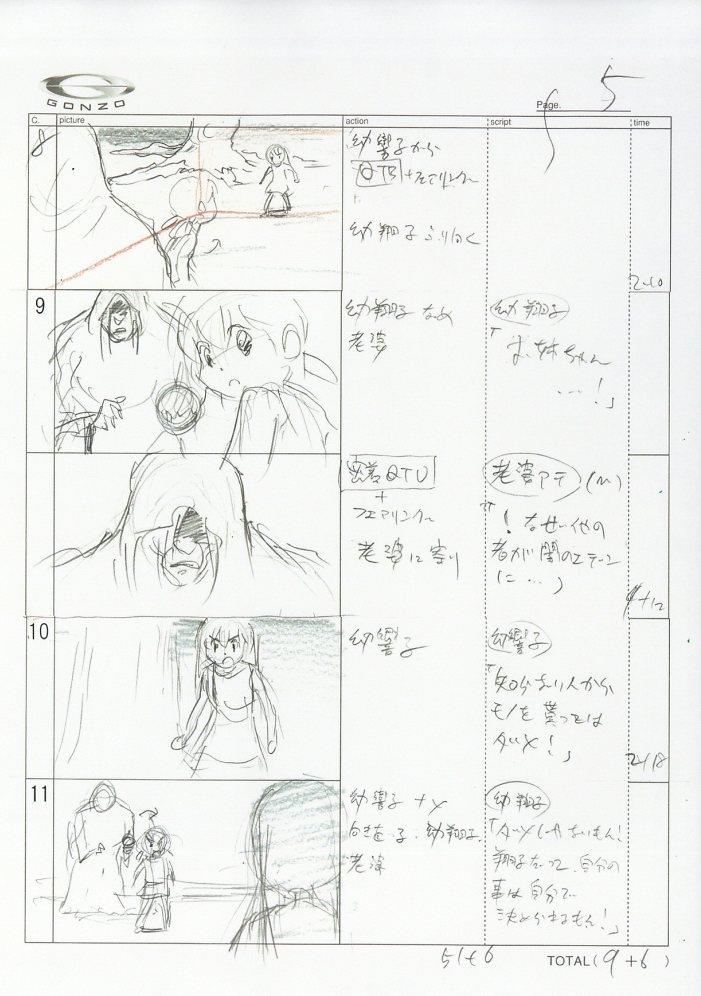 GONZO
Page. 5
C. picture action script time
8
幼響子から
QTB+フェアリング
幼翔子ふり向く
2+0
9
幼翔子なめ
老婆
幼翔子
「お姉ちゃん
…!」
QTU
+
フェアリング
老婆に寄り
老婆アテ(M)
『!なぜ他の
者が闇のエデン
に…』
4+12
10
幼響子
幼響子
「知らない人から
モノを貰っては
ダメ!」
2+18
11
幼響子ナメ
幼翔子
老婆
幼翔子
「ダメじゃないもん!
翔子だって、自分の
事は自分で
決められるもん!」
51+6
TOTAL(9+6)